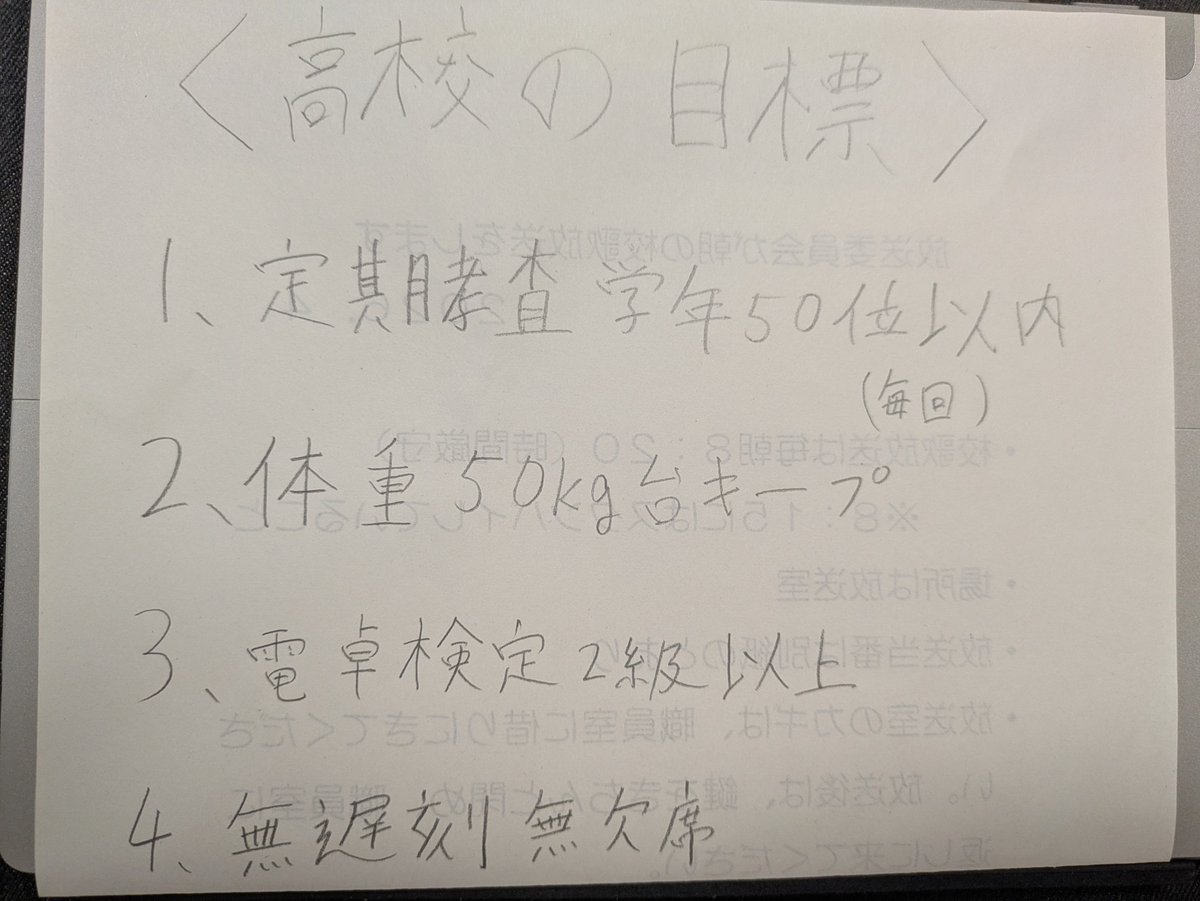 〈高校の目標〉
1、定期孝査 学年50位以内
(毎回)
2、体重 50kg台キープ
3、電卓検定2級以上
4、無遅刻 無欠席